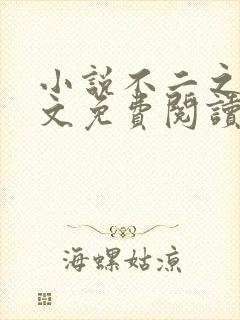 小說不二之
文免費閱讀
海螺姑涼